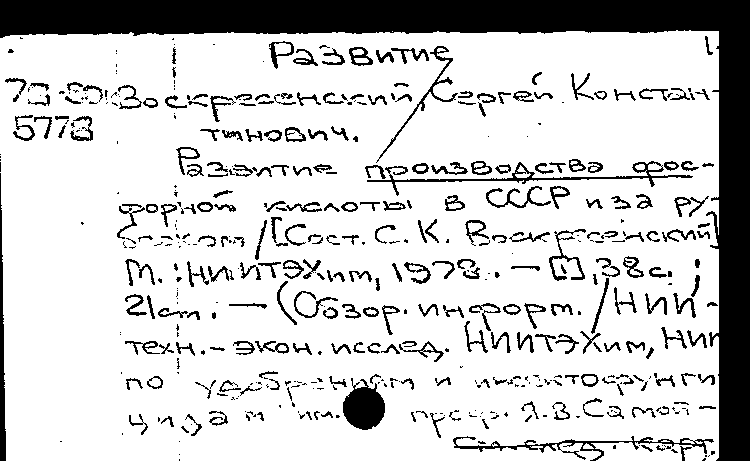 Развитие
Воскресенский, Сергей Констан-
тинович.
5778
Развитие производства фос-
форной кислоты в СССР и за ру-
бежом / [Сост. С. К. Воскресенский]
М. : НИИТЭХим, 1978. — [1], 38 с. ;
21 cm. — (Обзор. информ. / НИИ-
техн.-экон. исслед. НИИТЭХим, НИИ
по удобрениям и инсектофунги
цидам им. проф. Я. В. Самой-
См. след. карт.